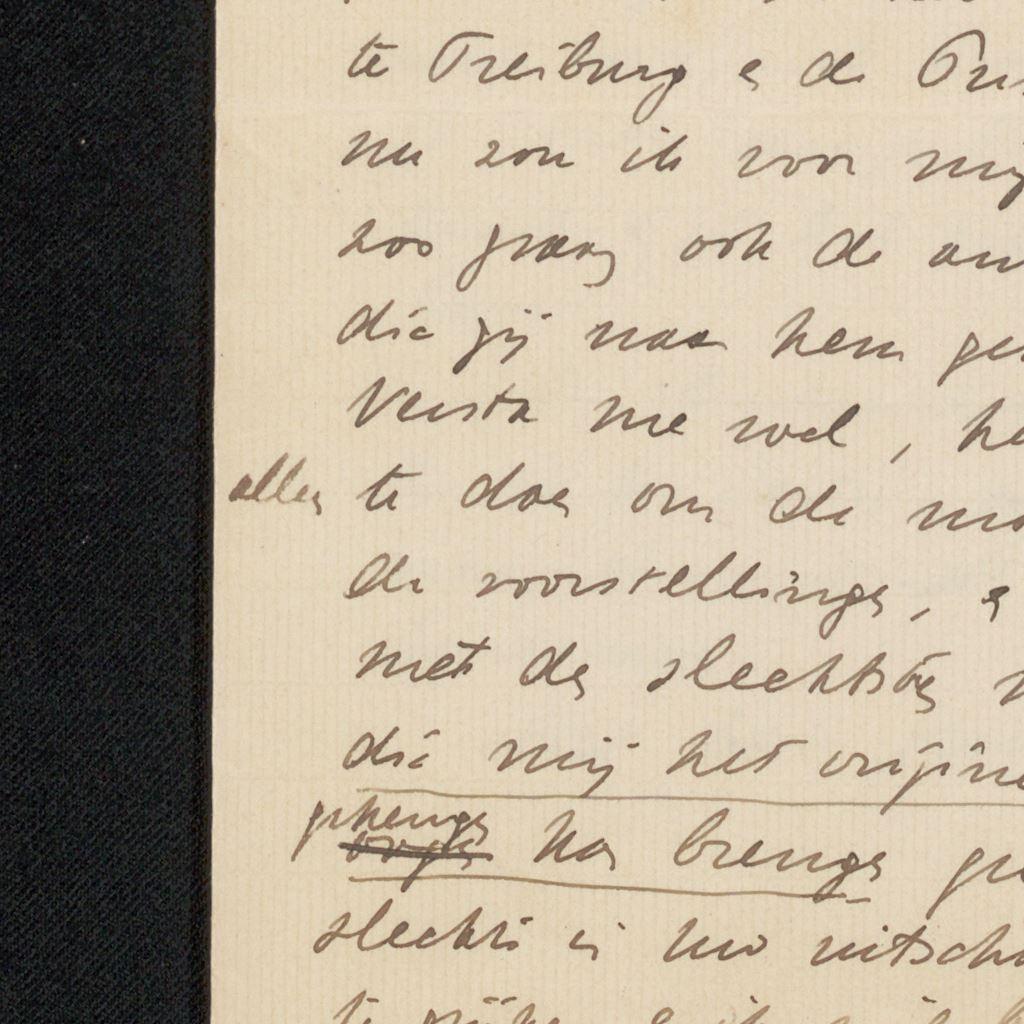 te Freiburg e de
nu zou ik voor mij
zoo graag ook de
die gij naar hem
Versta me wel, he
alles te doen om de
de voorstellingen, e
met de slechtste
die mij het origine
geheugen kan brengen
slechts in uw uitscha
te